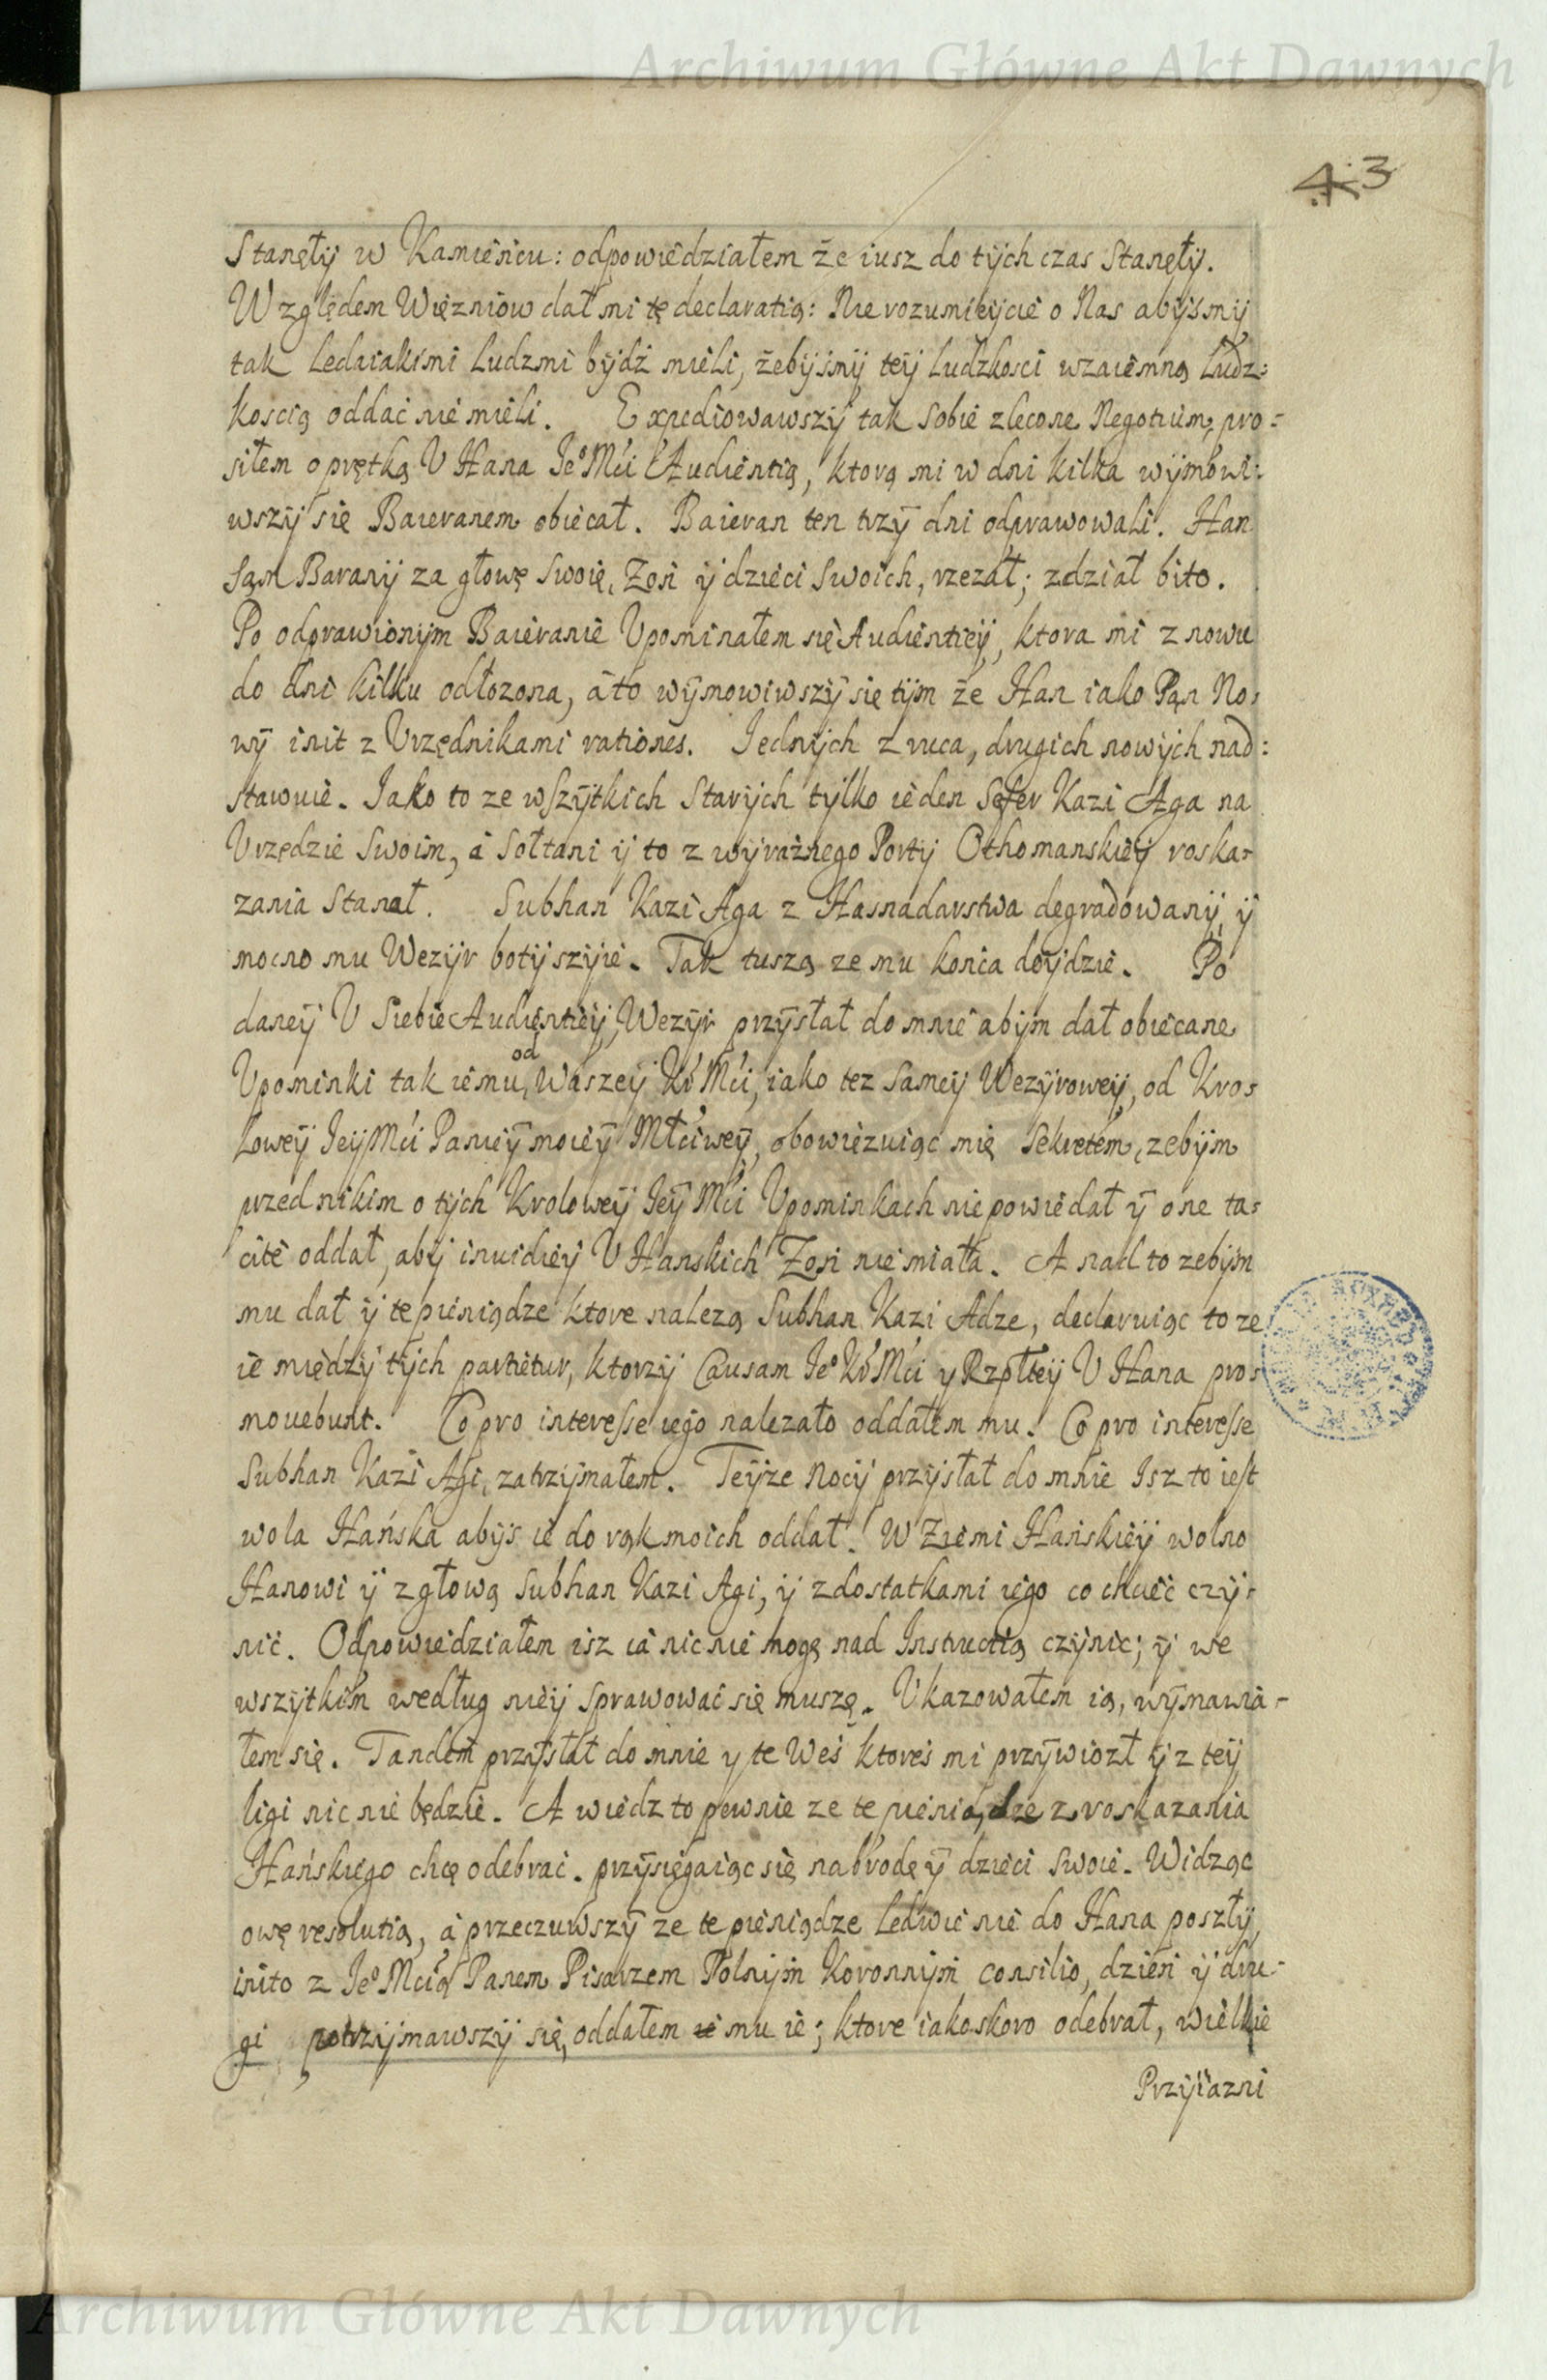 Archiwum Główne Akt Dawnych
43
Stanęły w Kamieńcu: odpowiedziałem że iusz do tÿch czas Stanęłÿ.
Względem Więzniow dał mi tę declaratią: Nie rozumieÿcie o Nas abÿsmÿ
tak Ledaiakimi Ludzmi bÿdź mieli, żebÿsmÿ teÿ Ludzkosci wzaiemną Ludz:
koscią oddać nie mieli. Expediowawszÿ tak Sobie zlecone Negotium, pro-
siłem o prętką V Hana Jeº Mći Audientią, ktorą mi w dni kilka wÿmowi:
wszÿ się Baieranem obiecał. Baieran ten trzÿ dni odprawowali. Han
Sam Baranÿ za głowę Swoię, Żon ÿ dzieci Swoich, rzezał; z dział bito.
Po odprawionÿm Baieranie Vpominałem się Audientieÿ, ktora mi znowu
do dni kilku odłozona, á to wÿmowiwszÿ się tÿm że Han iako Pan No-
wÿ init z Vrzędnikami rationes. Jednÿch zruca, drugich nowÿch nad:
stawuie. Jako to ze wszÿtkich Starÿch tÿlko ieden Sefer Kazi Aga na
Vrzędzie Swoim, á Sołtani ÿ to z wÿraźnego Portÿ Othomanskieÿ roska-
zania Stanał. Subhan Kazi Aga z Hasnadarstwa degradowanÿ, ÿ
mocno mu Wezÿr botÿ szÿie. Tak tuszą ze mu końca doÿdzie. Po
daneÿ V Siebie Audientieÿ, Wezÿr przÿsłał do mnie abÿm dał obiecane
Vpominki tak iemu, od Waszeÿ Kr Mći, iako tez Sameÿ Wezÿroweÿ, od Kro-
Loweÿ Jeÿ Mći Panieÿ moieÿ Młciweÿ, obowiezuiąc mię Sekretem, zebÿm
przed nikim o tÿch Kroloweÿ Jeÿ Mći Vpominkach nie powiedał ÿ one ta-
cite oddał, abÿ inuidieÿ V Hanskich Żon nie miała. A nad to zebÿm
mu dał ÿ te pieniądze ktore nalezą Subhan Kazi Adze, declaruiąc to ze
ie międzÿ tÿch partietur, ktorzÿ Causam Jeº Kr Mći y Rzpłteÿ V Hana pro-
mouebunt. Co pro interesse iego nalezało oddałem mu. Co pro interesse
Subhan Kazi Agi, zatrzÿmałem. Teÿże Nocÿ przÿsłał do mnie Isz to iest
wola Hańska abÿs ie do rąk moich oddał. W Ziemi Hańskieÿ wolno
Hanowi ÿ z głową Subhan Kazi Agi, ÿ z dostatkami iego co chcieć czÿ-
nić. Odpowiedziałem isz ia nic nie mogę nad Instructią czÿnic; ÿ we
wszÿtkim według nieÿ Sprawować się muszę. Vkazowałem ią, wÿmawia-
łem się. Tandem przÿsłał do mnie y te Weś ktoreś mi przÿwiozł ÿ z teÿ
ligi nic nie będzie. A wiedz to pewnie ze te pieniądze z roskazania
Hańskiego chcę odebrać. przÿsięgaiąc się na brodę ÿ dzieci Swoie. Widząc
owę resolutią, á przeczuwszÿ ze te pieniądze Ledwie nie do Hana poszłÿ,
inito z Jeº Mcią Panem Pisarzem Polnÿm Koronnÿm consilio, dzień ÿ dru-
gi potrzÿmawszÿ się, oddałem ie mu ie; ktore iako skoro odebrał, wielkie
Przÿiazni
Archiwum Główne Akt Dawnych